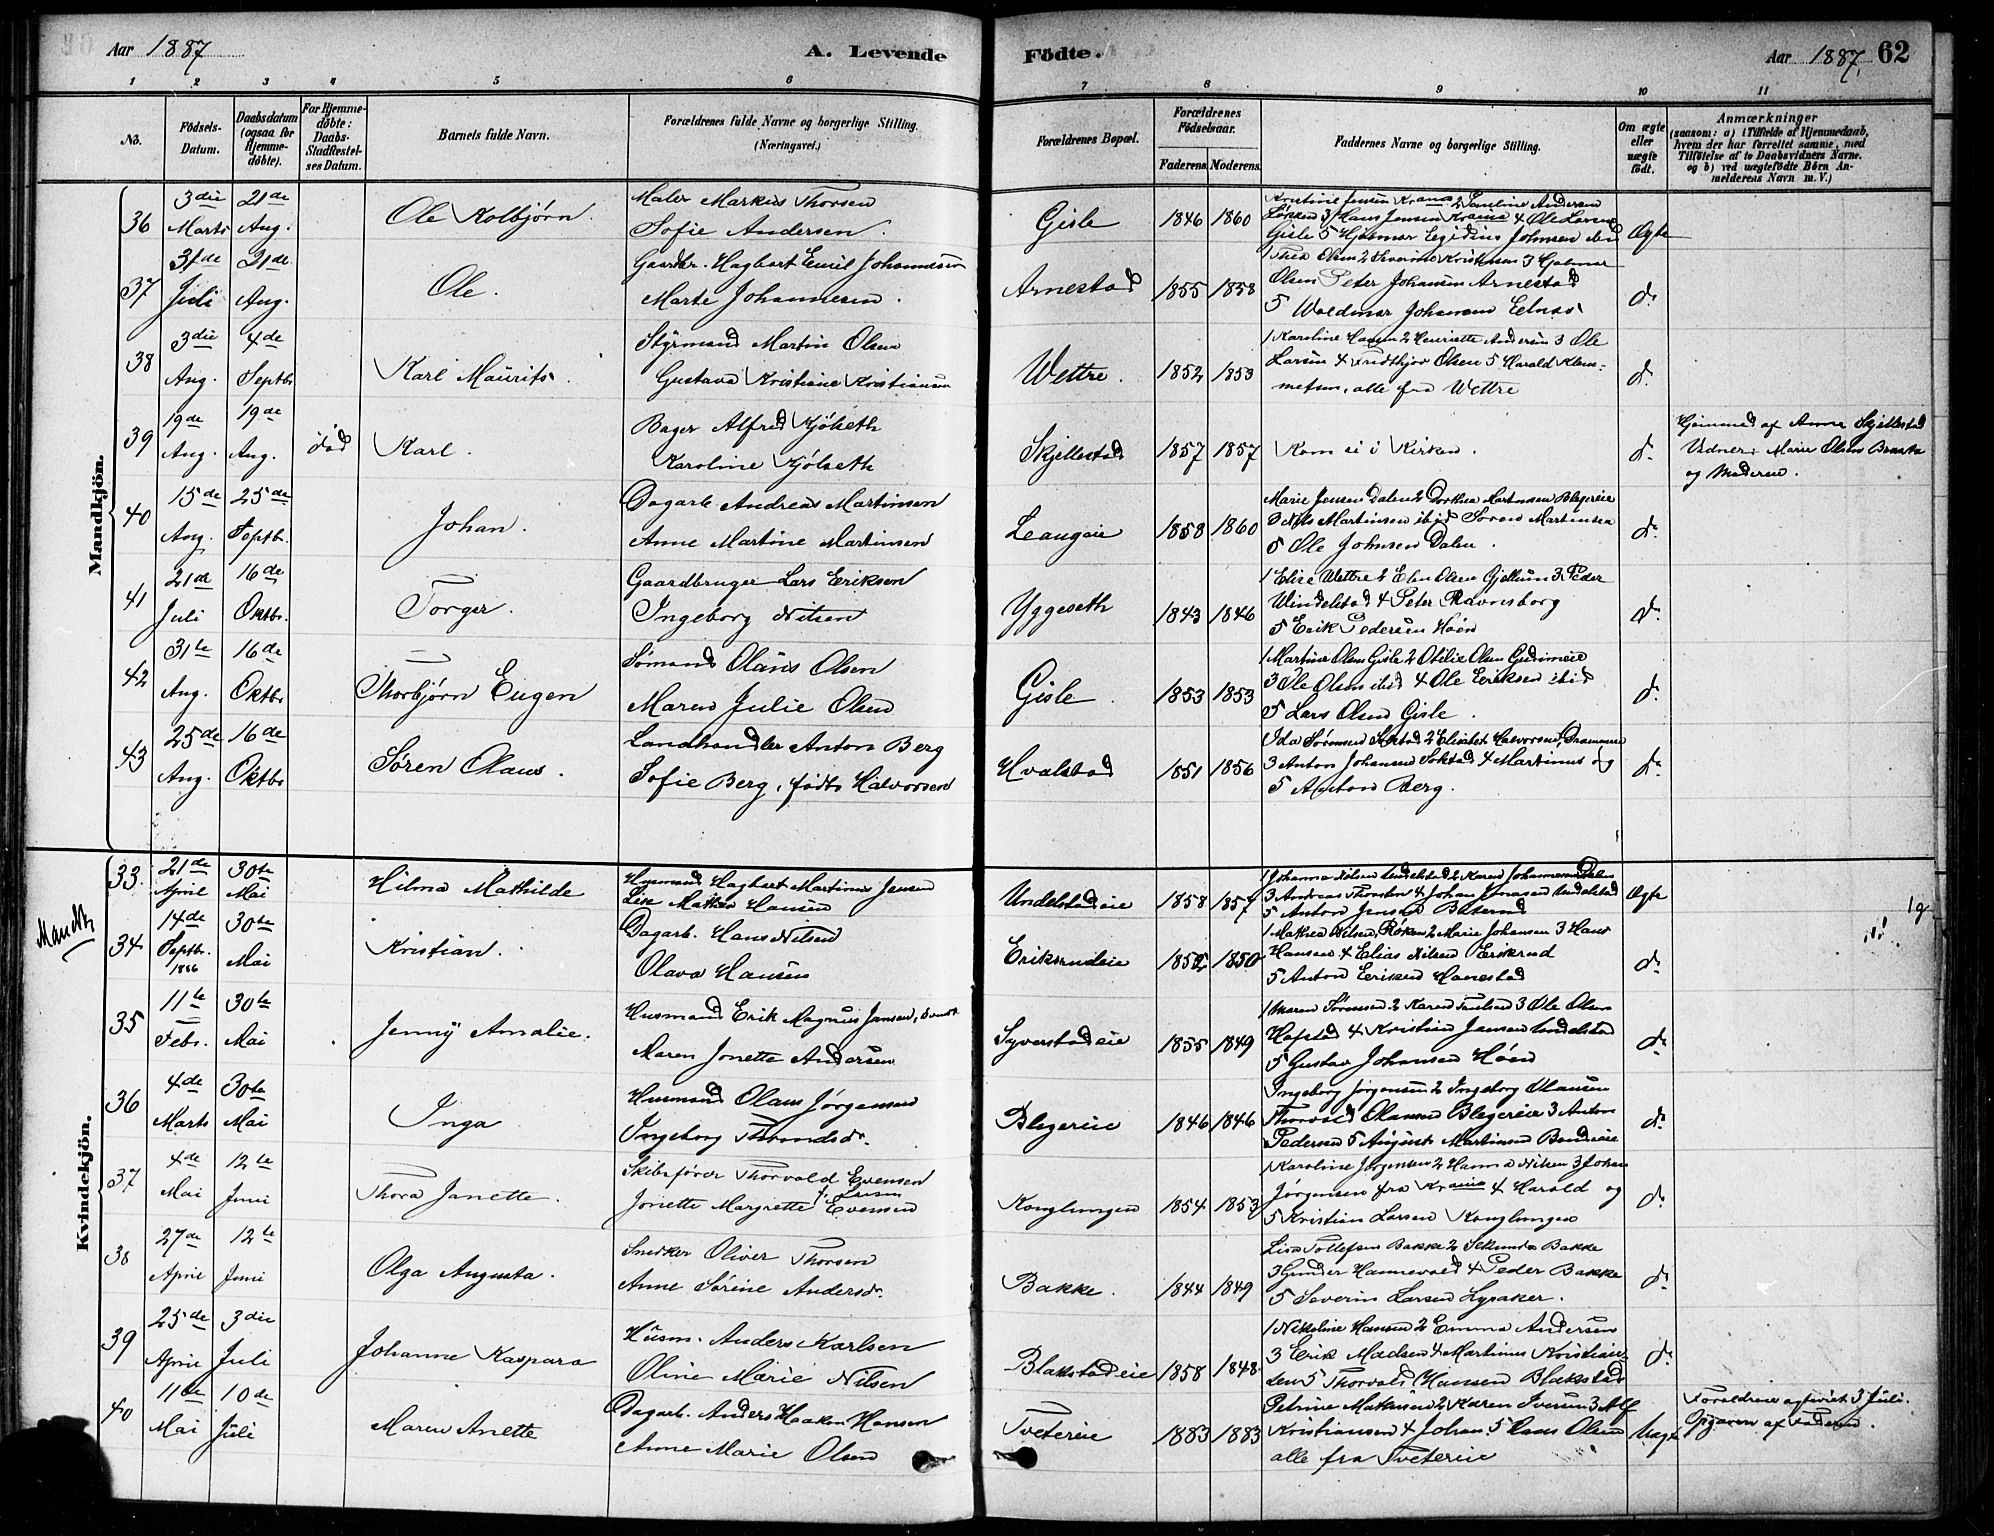 Aar 1887 A. Levende Födte. Aar 1887. 62
1 2 3 4 5 6 7 8 9 10 11
No. Födsels-Datum. Daabsdatum (ogsaa for Hjemme-döbte). For Hjemme-döbte: Daabs-Stadfæstel-ses Datum. Barnets fulde Navn. Forældrenes fulde Navne og borgerlige Stilling. (Næringsvei.) Forældrenes Bopæl. Forældrenes Födselsaar. Faderens Moderens. Faddernes Navne og borgerlige Stilling. Om ægte eller uægte födt. Anmærkninger (saasom: a) i Tilfælde af Hjemmedaab, hvem der har forrettet samme, med Tilföielse af to Daabsvidners Navne. og b) ved uægtefödte Börn An-melderens Navn m. V.)
Mandkjön.
36 3die Marts 21de Aug. Ole Kolbjørn. Maler Markus Thorsen
Sofie Andersen. Gisle 1846 1860 Kristine Jensen 2 Pauline Andersen
3 Hans Jensen 4 Ole Larsen
Gisle 5 Hjalmar Egidius Johnsen Ægte
37 31de Juli 21de Aug. Ole. Gaardbr. Hagbart Emil Johannesen
Marte Johannesen. Arnestad 1855 1858 1 Thea Olsen 2 Severine Kristensen 3 Hjalmar
Olsen Peter Johansen Arnestad
5 Waldmar Johansen Elnæs do
38 3die Aug. 4de Septbr Karl Maurits. Styrmand Martin Olsen
Gustava Kristiane Kristiansen Wettre. 1852 1853 1 Karoline Hansen 2 Henriette Andersen 3 Ole
Larsen 4 Fridthjov Olsen 5 Harald Klem-
metsen, alle fra Wettre do
39 19de Aug. 19de Aug. död Karl. Bager Alfred Kjölseth
Karoline Kjölseth Skjellestad 1857 1857 Kom ei i Kirken. do Hjemmed af Anne Skjellestad
Vidner: Marie Olsen
og Moderen.
40 15de Aug. 25de Septb. Johan. Dagarb. Andreas Martinsen
Anne Martine Martinsen Leangeie 1858 1860 Marie Jensen Dalen 2 Dorthea Martinsen Blegereie
3 Nils Martinsen ibid Søren Martinsen
5 Ole Johnsen Dalen. do
41 21de Juli 16de Oktbr. Torger. Gaardbruger Lars Eriksen
Ingeborg Nilsen Yggeseth 1843 1846 1 Elise Wettre 2 Elen Olsen Gjellum 3 Peder
Windelstad 4 Peter Ravnsborg
5 Erik Pedersen Høn do
42 31te Aug. 16de Oktbr Thorbjørn Eugen Sømand Olaus Olsen
Maren Julie Olsen Gisle 1853 1853 1 Martine Olsen Gisle 2 Otilie Olsen
3 Ole Olsen ibid 4 Ole Eriksen ibid
5 Lars Olsen Gisle. do
43 25de Aug. 16de Oktbr Søren Olaus. Landhandler Anton Berg
Sofie Berg, født Halvorsen Hvalstad 1851 1856 1 Ida Sørensen 2 Elisabet Halvorsen, Drammen
3 Anton Johansen 4 Martinus og
5 Anton Berg. do
Kvindekjön.
33. 21de April 30te Mai Hilma Mathilde Husmand Hagbart Martinus Jensen
Lise Mathea Hansen Undelstadeie 1858 1857 1 Johanna Nilsen Undelstad 2 Karen Johannesen Dalen
3 Andreas Thorsten 4 Johan Jonasen Undelstad
5 Anton Jensen Ægte
Mandk. 34 14de Septbr. 1886 30te Mai Kristian. Dagarb. Hans Nilsen
Olava Hansen Eriksrudeie 1852 1850 1 Mathea Nilsen, Røken 2 Marie Johansen 3 Hans
Hansen 4 Elias Nilsen Eriksrud
5 Anton Eriksen Hanestad do
35 11te Febr. 30te Mai Jenny Amalie. Husmand Erik Magnus Jansen,
Maren Jonette Andersen Syverstadeie 1855 1849 1 Maren Sørensen 2 Karen Paulsen 3 Ole Olsen
Hofstad 4 Kristian Jansen Undelstad
5 Gustav Johansen Høn do
36 4de Marts 30te Mai Inga Husmand Olaus Jørgensen
Ingeborg Throndsdr. Blegereie 1846 1846 Ingeborg Jørgensen 2 Ingeborg Olausen
Thorvald Olausen Blegereie 3 Anton
Pedersen 5 August Martinsen do
37 4de Mai 12te Juni Thora Janette. Skibsfører Thorvald Evensen
Jonette Margrette Evensen f. Larsen Konglungen 1854 1853 1 Karoline Jørgensen 2 Hanna Nilsen 3 Johan
Jørgensen fra 4 Harald og
5 Kristian Larsen Konglungen do
38 27de April 12te Juni Olga Augusta. Snedker Oliver Thorsen
Anne Sørine Andersdr. Bakke. 1844 1849 Lisa Tollefsen Bakke 2 Sekunda Bakke
3 Gunder Hannevold 4 Peder Bakke
5 Severin Larsen Lysaker. do
39 25de April 3die Juli Johanne Kaspara Husm. Anders Karlsen
Oline Marie Nilsen Blakstadeie 1858 1848 1 Nikoline Hansen 2 Emma Andersen
3 Erik Madsen 4 Martinus Kristian-
sen 5 Thorvald Hansen Blakstad do
40 11te Mai 10de Juli Maren Anette Dagarb. Anders Haaken Hansen
Anne Marie Olsen Tvetereie 1883 1883 Petrine Mathisen 2 Karen Iversen 3 Alf
Kristiansen 4 Johan 5 Hans Olsen
alle fra Tvetereie Uægte Forældrene ægteviet 3 Juli.
Opgaven af Faderen.